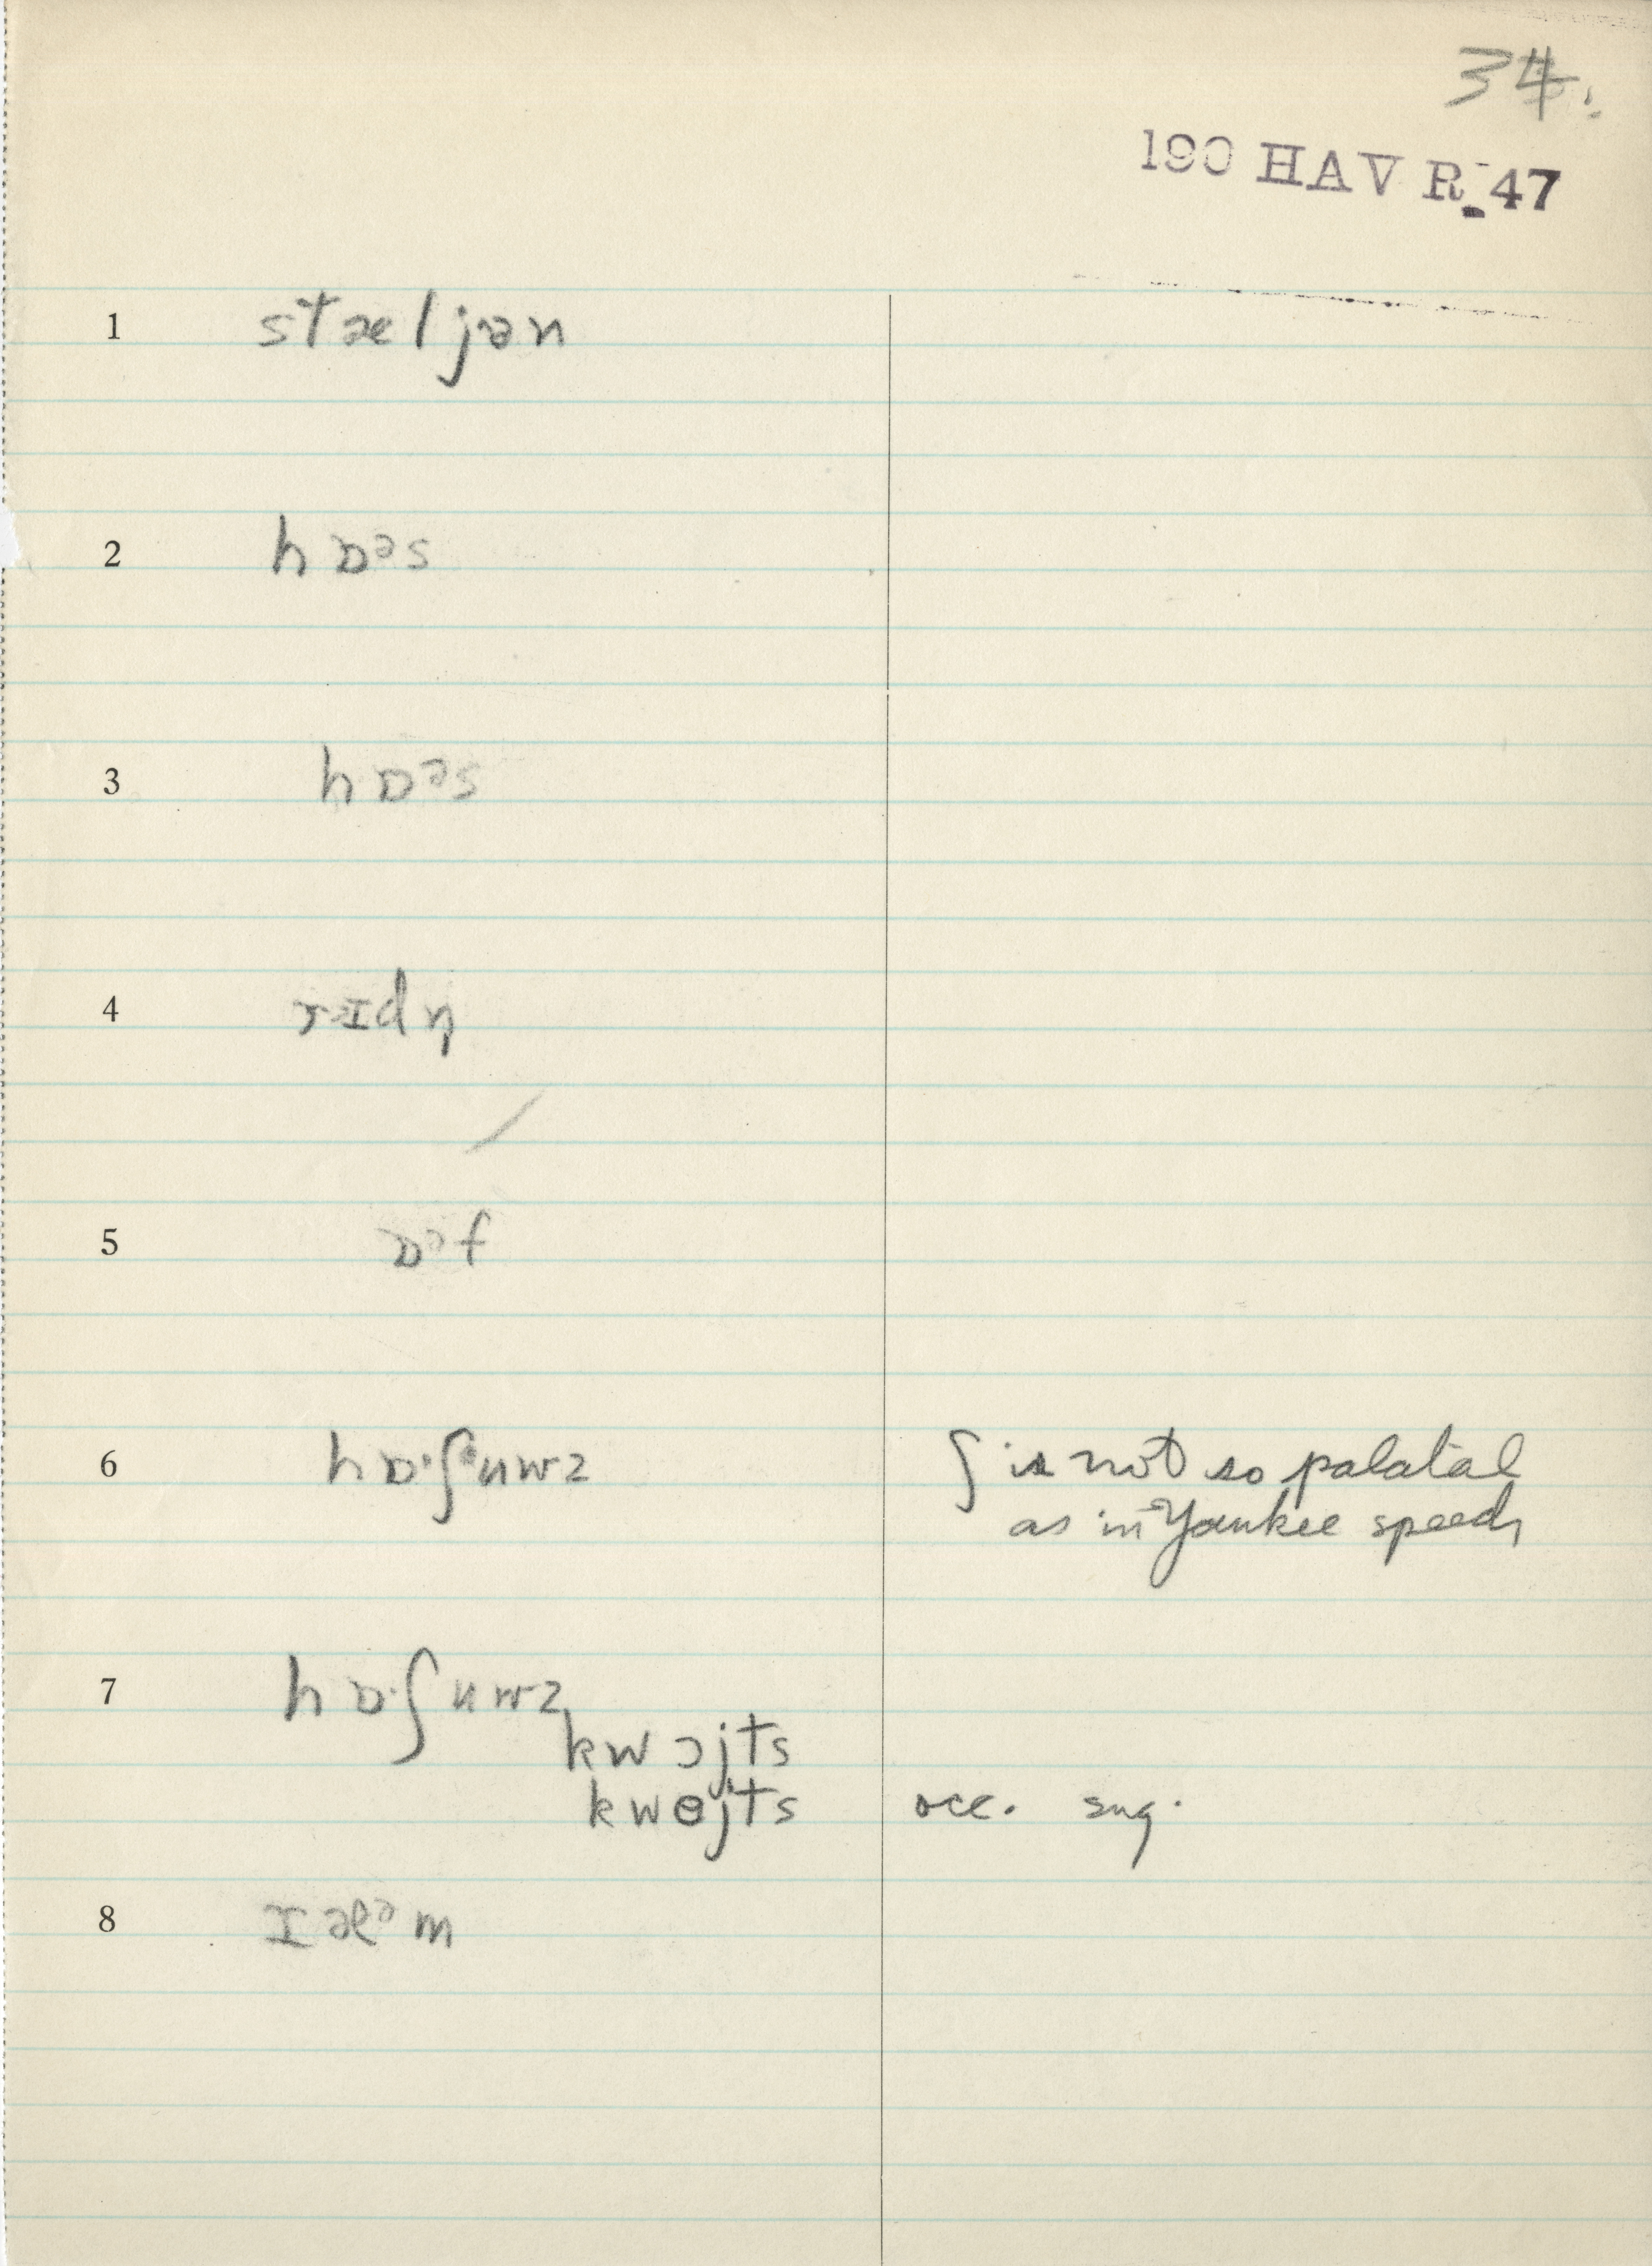 34.
190 HAV R 47
1 stæljən
2 hɒᵊs
3 hɒᵊs
4 rɪdn̩
5 ɒᵊf
6 hɒ·ʃᵊuwz ʃ is not so palatal
as in Yankee speech
7 hɒ·ʃuwz
kwɔjts
kwɵjts occ. sug.
8 ɪæᵊm